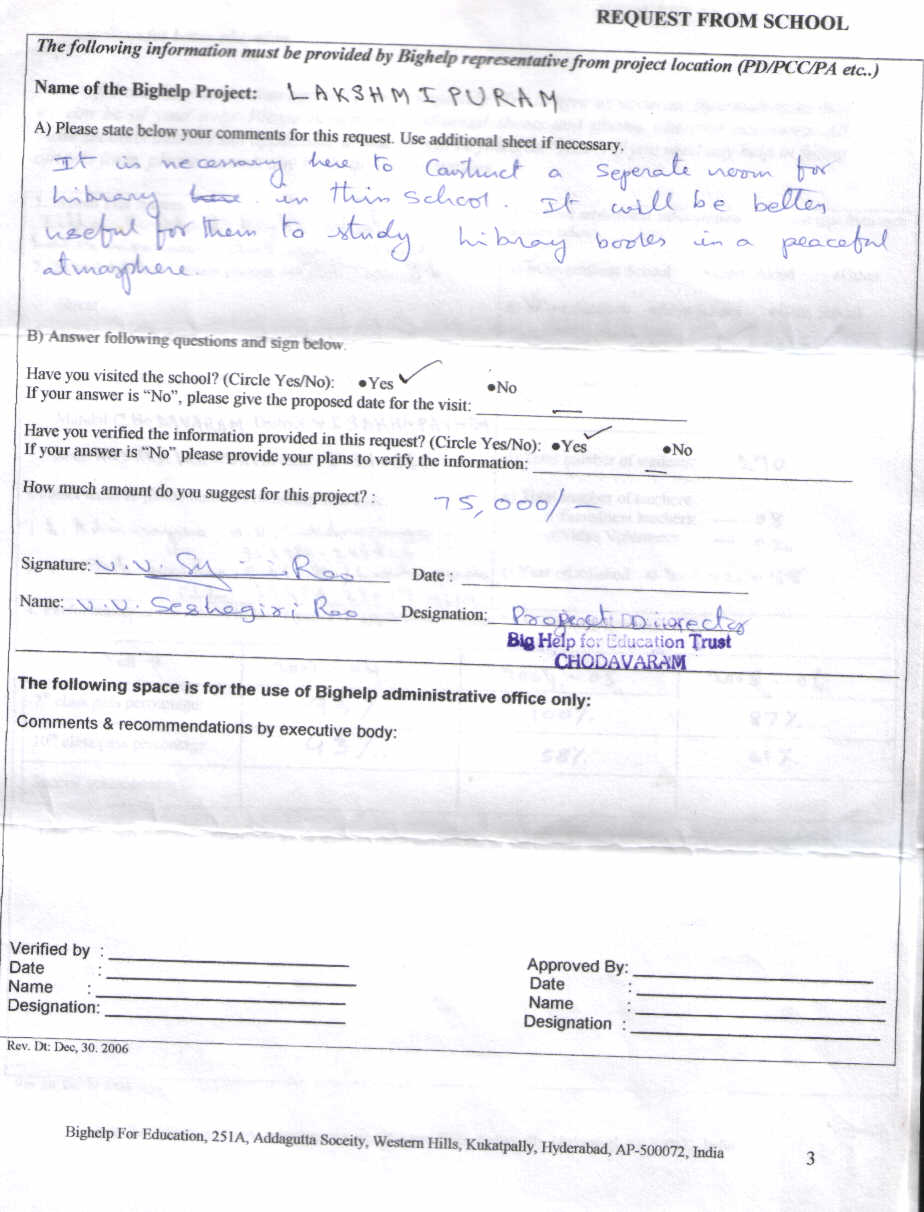 REQUEST FROM SCHOOL
The following information must be provided by Bighelp representative from project location (PD/PCC/PA etc..)
Name of the Bighelp Project: LAKSHMIPURAM
A) Please state below your comments for this request. Use additional sheet if necessary.
It is necessary here to Construct a Seperate room for
Library here in this school. It will be better
useful for them to study Library books in a peaceful
atmasphere
B) Answer following questions and sign below.
Have you visited the school? (Circle Yes/No): •Yes ✓ •No
If your answer is "No", please give the proposed date for the visit: —
Have you verified the information provided in this request? (Circle Yes/No): •Yes ✓ •No
If your answer is "No" please provide your plans to verify the information: —
How much amount do you suggest for this project? : 75,000/-
Signature: Date :
Name: V.V. Seshagiri Rao Designation: Project Director
Big Help for Education Trust
CHODAVARAM
The following space is for the use of Bighelp administrative office only:
Comments & recommendations by executive body:
Verified by : Approved By:
Date : Date :
Name : Name :
Designation: Designation :
Rev. Dt: Dec, 30. 2006
Bighelp For Education, 251A, Addagutta Soceity, Western Hills, Kukatpally, Hyderabad, AP-500072, India
3